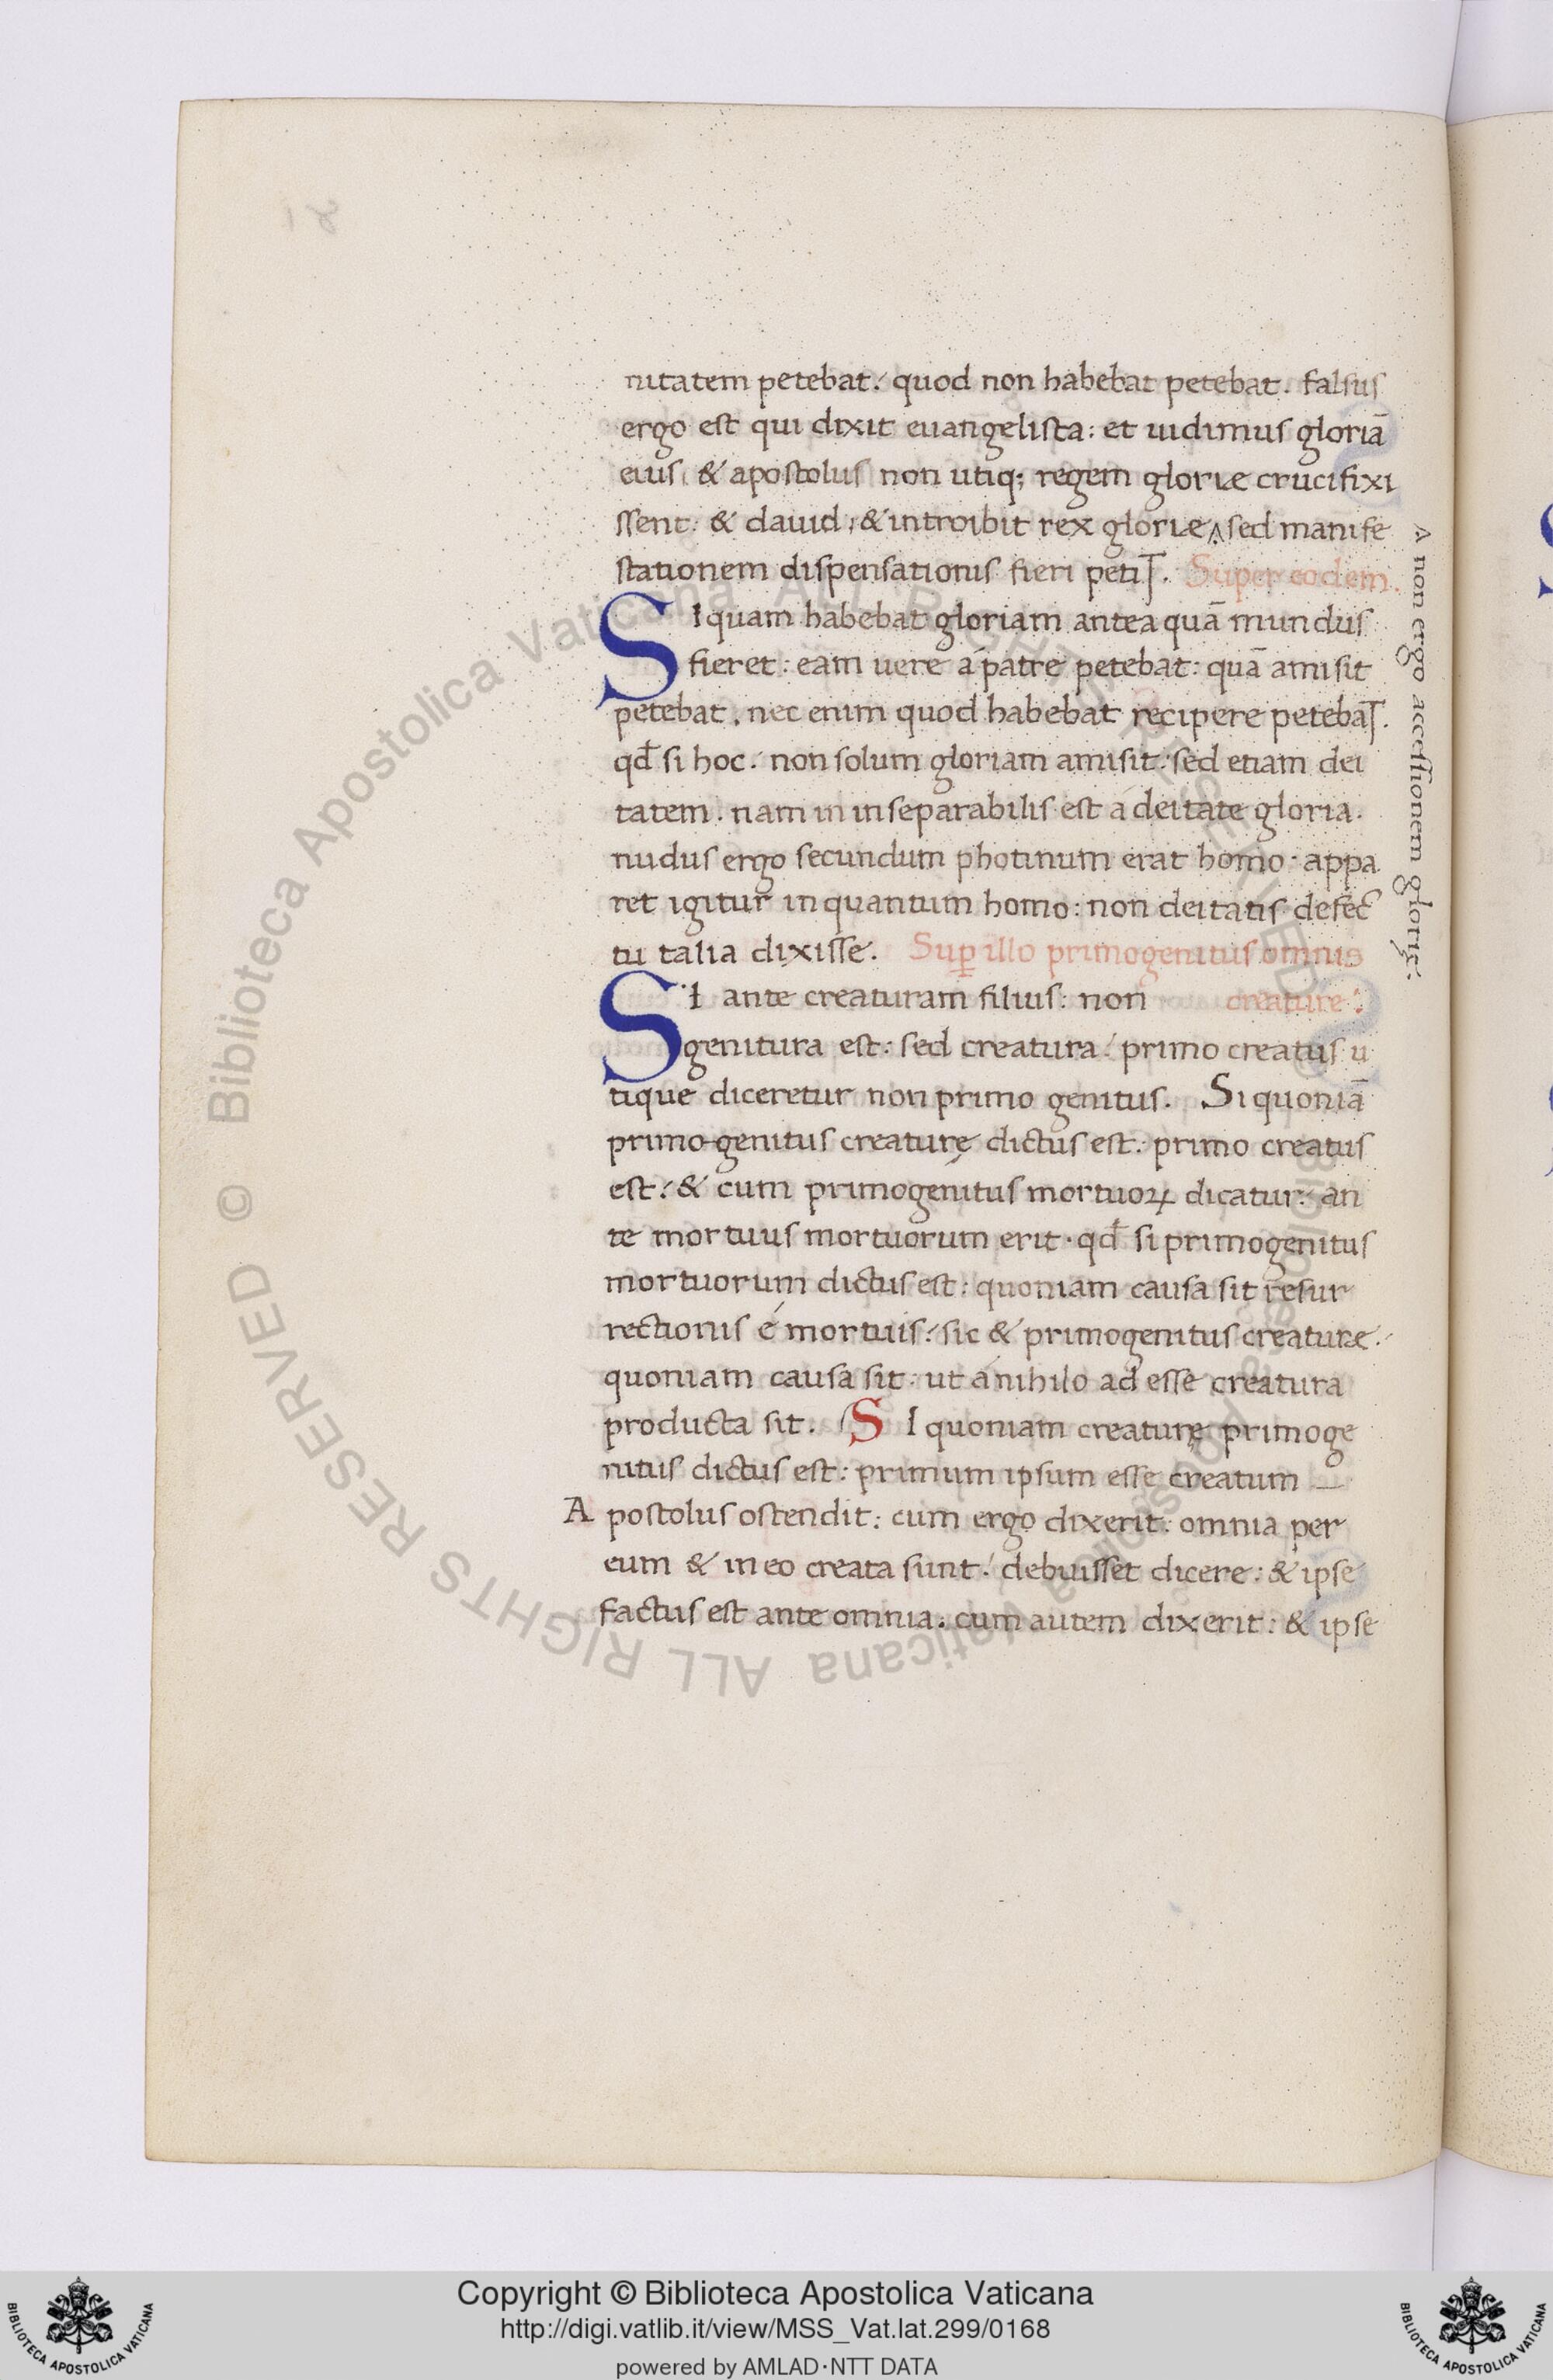 nitatem petebat: quod non habebat petebat. falsus
ergo est qui dixit euangelista: et uidimus gloriā
eius. & apostolus non utiq; regem gloriæ crucifixi
ssent. & dauid, & introibit rex gloriæ ‸ sed manife
stationem dispensationis fieri petiT. Super eodem.
SI quam habebat gloriam antea quā mundus
fieret: eam uere á patre petebat: quā amisit
petebat. nec enim quod habebat recipere petebaT.
qđ si hoc. non solum gloriam amisit: sed etiam dei
tatem. nam in inseparabilis est á deitate gloria.
nudus ergo secundum photinum erat homo. appa
ret igitur in quantum homo: non deitatis defec
tu talia dixisse. Suꝑ illo primogenitus omnis
SI ante creaturam filius: non creature:
genitura est: sed creatura: primo creatus u
tique diceretur non primo genitus. Si quoniā
primo-genitus creaturę dictus est: primo creatus
est: & cum primogenitus mortuoꝝ dicatur: an
te mortuus mortuorum erit. qđ si primogenitus
mortuorum dictus est: quoniam causa sit resur
rectionis é mortuis: sic & primogenitus creaturæ.
quoniam causa sit: ut á nihilo ad esse creatura
producta sit. SI quoniam creaturę primoge
nitus dictus est: primum ipsum esse creatum
Apostolus ostendit: cum ergo dixerit: omnia per
eum & in eo creata sunt: debuisset dicere: & ipse
factus est ante omnia. cum autem dixerit: & ipse
‸ non ergo accessionem glorię:
© Biblioteca Apostolica Vaticana ALL RIGHTS RESERVED
© Biblioteca Apostolica Vaticana ALL RIGHTS RESERVED
Copyright © Biblioteca Apostolica Vaticana
http://digi.vatlib.it/view/MSS_Vat.lat.299/0168
powered by AMLAD·NTT DATA
BIBLIOTECA APOSTOLICA VATICANA
BIBLIOTECA APOSTOLICA VATICANA